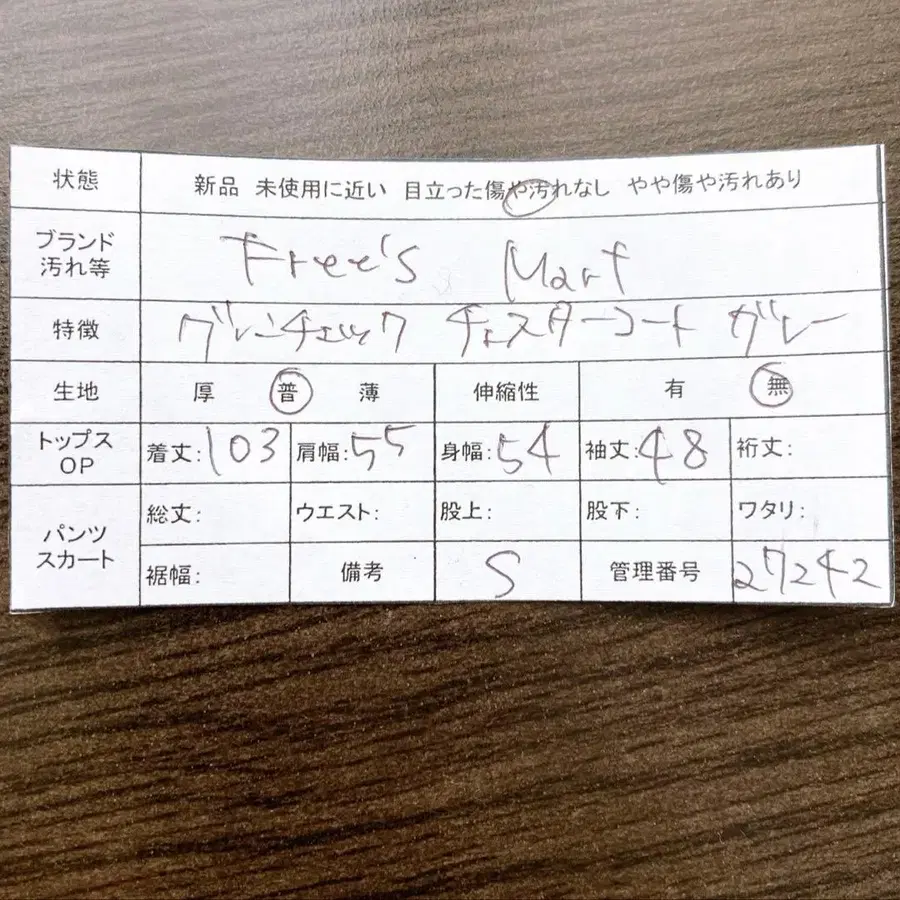 状態 新品 未使用に近い 目立った傷や汚れなし やや傷や汚れあり
ブランド
汚れ等 Free's Mart
特徴 グレンチェック チェスターコート グレー
生地 厚 普 薄 伸縮性 有 無
トップス
OP 着丈:103 肩幅:55 身幅:54 袖丈:48 裄丈:
パンツ
スカート 総丈: ウエスト: 股上: 股下: ワタリ:
裾幅: 備考 S 管理番号 27242